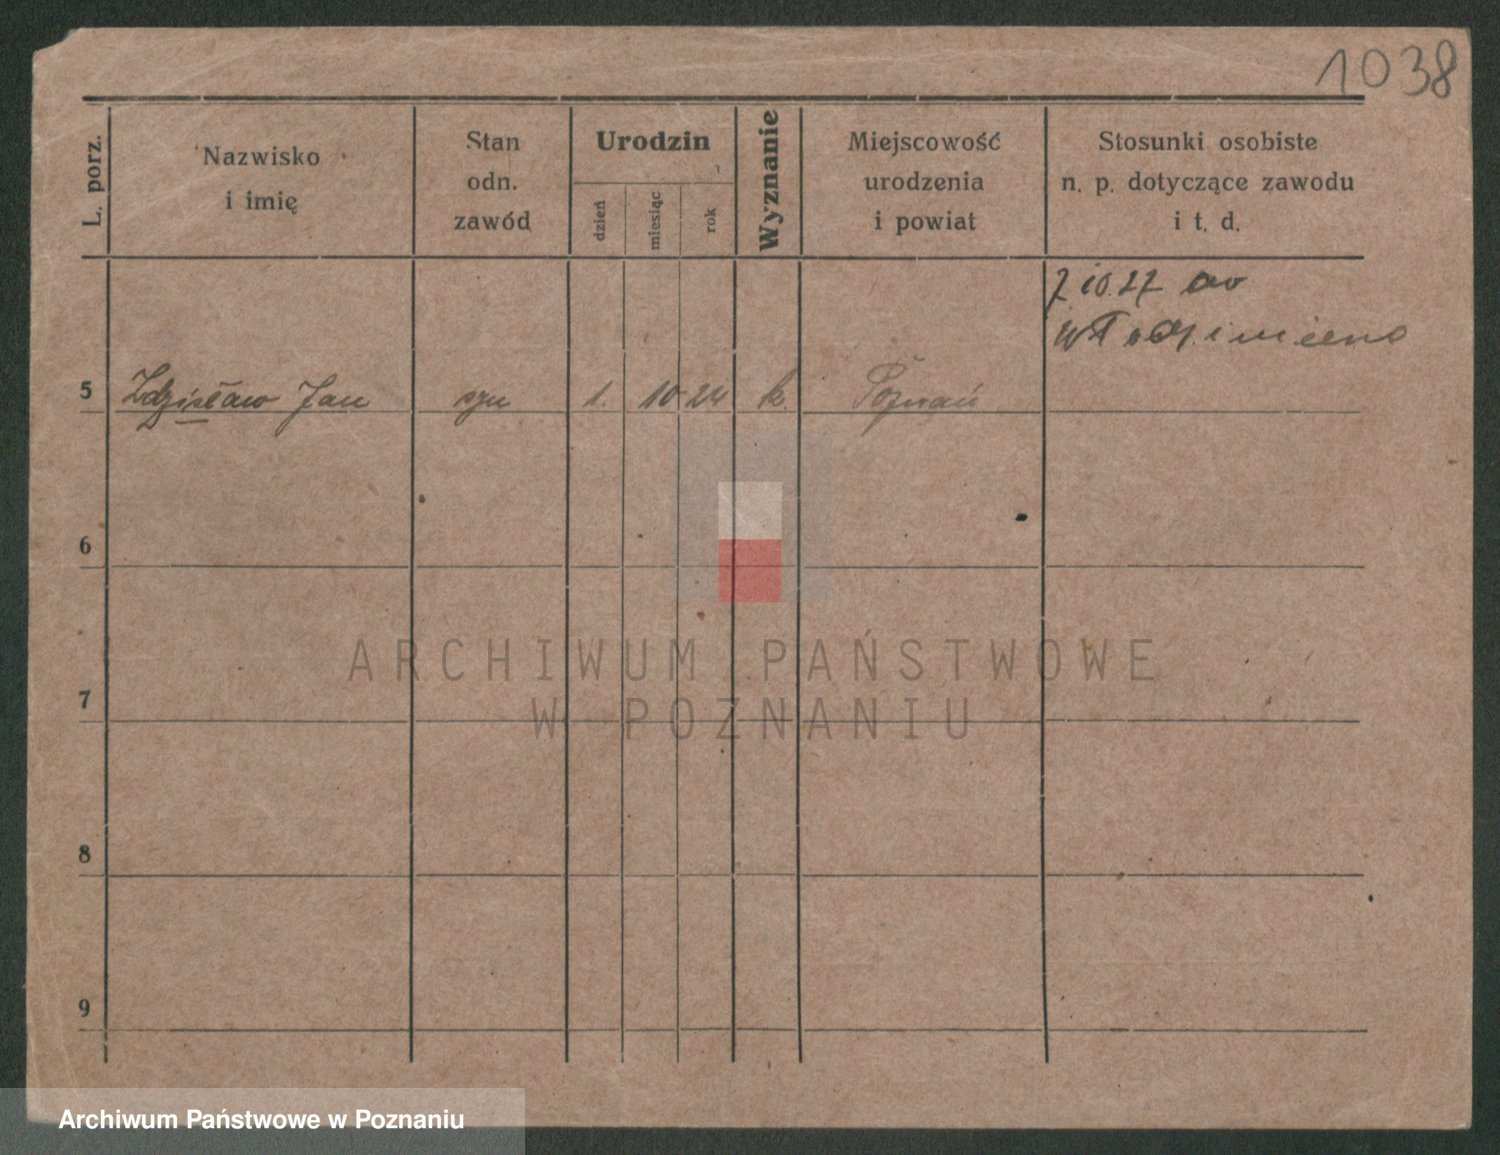 1038
L. porz.
Nazwisko
i imię
Stan
odn.
zawód
Urodzin
dzień
miesiąc
rok
Wyznanie
Miejscowość
urodzenia
i powiat
Stosunki osobiste
n. p. dotyczące zawodu
i t. d.
7.10.27 do
5 Zdzisław Jan syn 1. 10 24 k. Poznań
6
7
8
9
ARCHIWUM PAŃSTWOWE
W POZNANIU
Archiwum Państwowe w Poznaniu